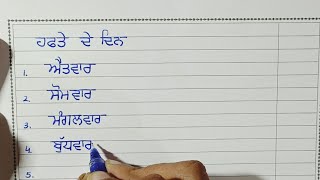 ਹਫਤੇ ਦੇ ਦਿਨ
1. ਐਤਵਾਰ
2. ਸੋਮਵਾਰ
3. ਮੰਗਲਵਾਰ
4. ਬੁੱਧਵਾਰ
5.